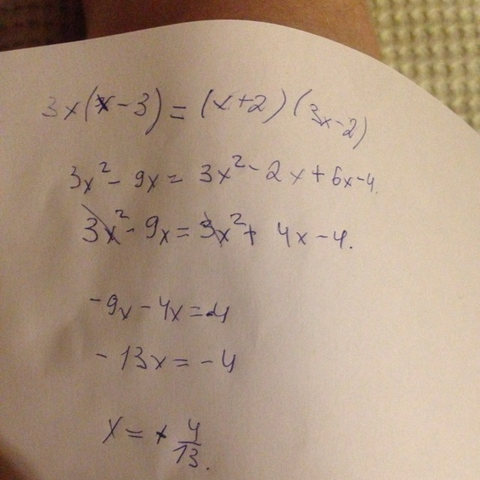 3x(x-3) = (x+2)(3x-2)
3x² - 9x = 3x² - 2x + 6x - 4.
3x² - 9x = 3x² + 4x - 4.
-9x - 4x = -4
- 13x = -4
x = + 4/13.